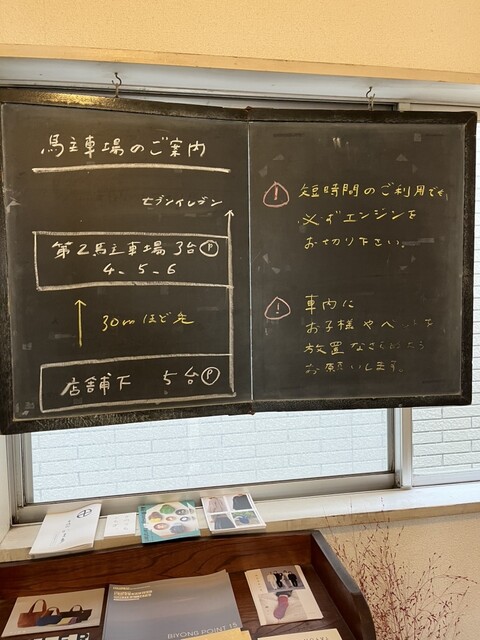 駐車場のご案内
セブンイレブン
第2駐車場 3台 P
4、5、6
30mほど先
店舗下 5台 P
! 短時間のご利用でも
必ずエンジンを
お切り下さい。
! 車内に
お子様やペットを
放置なさらぬよう
お願いします。
BIYONG POINT 15